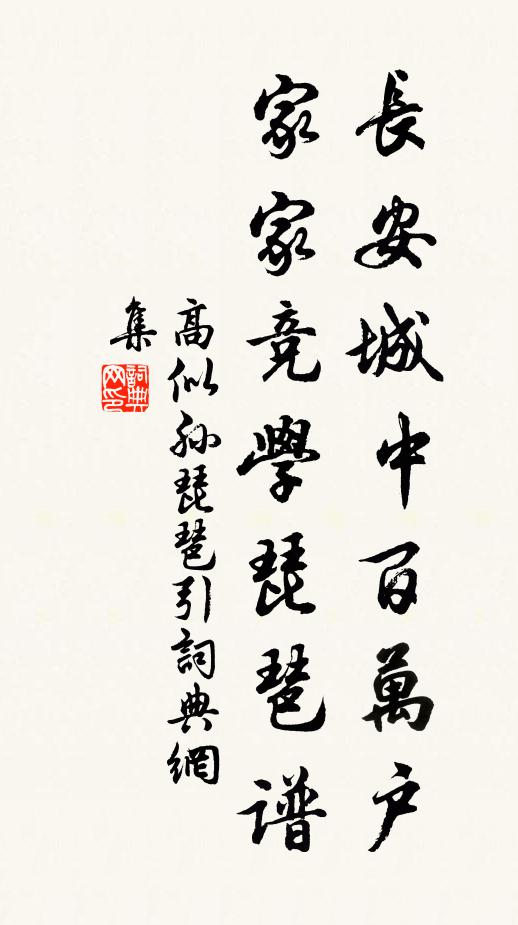 長安城中百萬户
家家竞學琵琶谱
高似孫琵琶引詞典網
集
詞典
网印